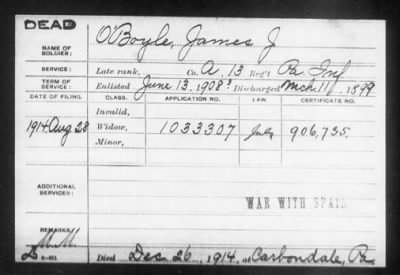 DEAD
NAME OF SOLDIER: O'Boyle, James J
SERVICE: Late rank, Co. A. 13 Reg't Pa. Inf
TERM OF SERVICE: Enlisted June 13, 1908? Discharged Mch. 11, 1899
DATE OF FILING. CLASS. APPLICATION NO. LAW. CERTIFICATE NO.
Invalid,
1914 Aug 28 Widow, 1033307 July 906,735.
Minor,
ADDITIONAL SERVICES:
WAR WITH SPAIN
REMARKS:
Died Dec 26, 1914, at Carbondale, Pa